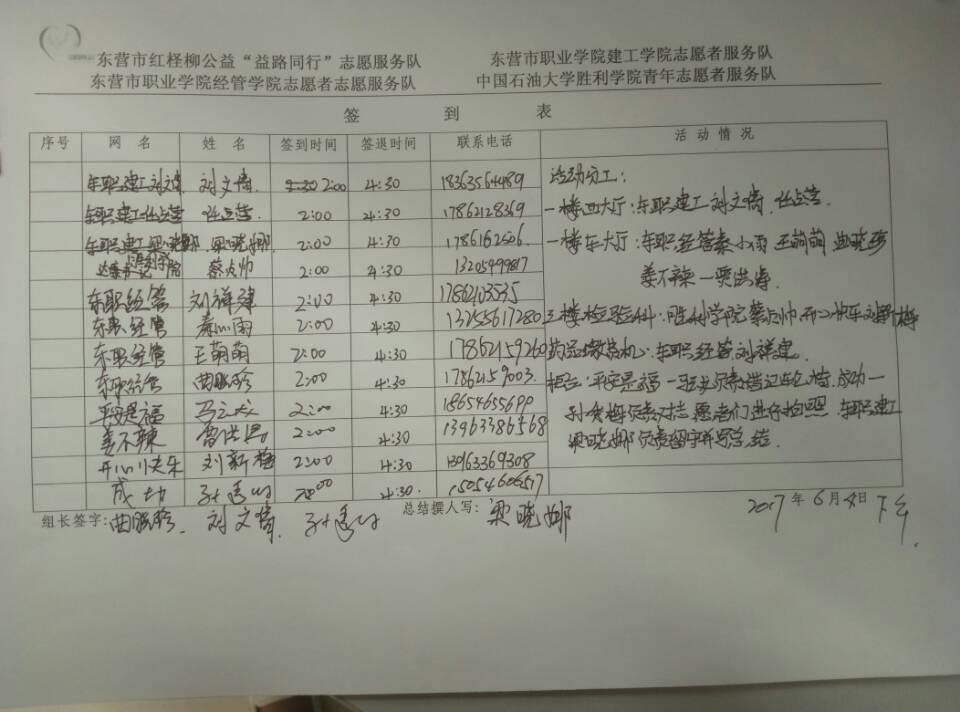 东营市红柽柳公益“益路同行”志愿服务队 东营市职业学院建工学院志愿者服务队
东营市职业学院经管学院志愿者志愿服务队 中国石油大学胜利学院青年志愿者服务队
签 到 表
序号 网 名 姓 名 签到时间 签退时间 联系电话 活 动 情 况
东职建工刘文倩 刘文倩 2:30 2:00 4:30 18363564489 活动分工:
东职建工任占营 任占营 2:00 4:30 17862128369 一楼西大厅:东职建工刘文倩.任占营.
东职建工梁晓娜 梁晓娜 2:00 4:30 1786162506 一楼东大厅:东职经管秦小雨 王萌萌 曲晓珍
胜利学院 蔡贞帅 2:00 4:30 13205499817 姜不辣一贾洪涛
东职经管 刘祥建 2:00 4:30 17862103535
东职经管 秦小雨 2:00 4:30 13255617280 三楼检验科:胜利学院蔡贞帅 开心快乐刘新梅
东职经管 王萌萌 2:00 4:30 17862159260 药品缴费机:东职经管刘祥建
东职经管 曲晓珍 2:00 4:30 17862159003. 平安是福一马 负责
平安是福 马 2:00 4:30 18654655699 负责对志愿者们进行拍照.东职建工
姜不辣 2:00 4:30 13963386568 梁晓娜负责留守并写总结
开心快乐 刘新梅 2:00 4:30 13963369308
成功 孙 2:00 4:30. 15054606517
组长签字:曲晓珍. 刘文倩. 孙 总结撰人写:梁晓娜 2017年6月4日 下午.